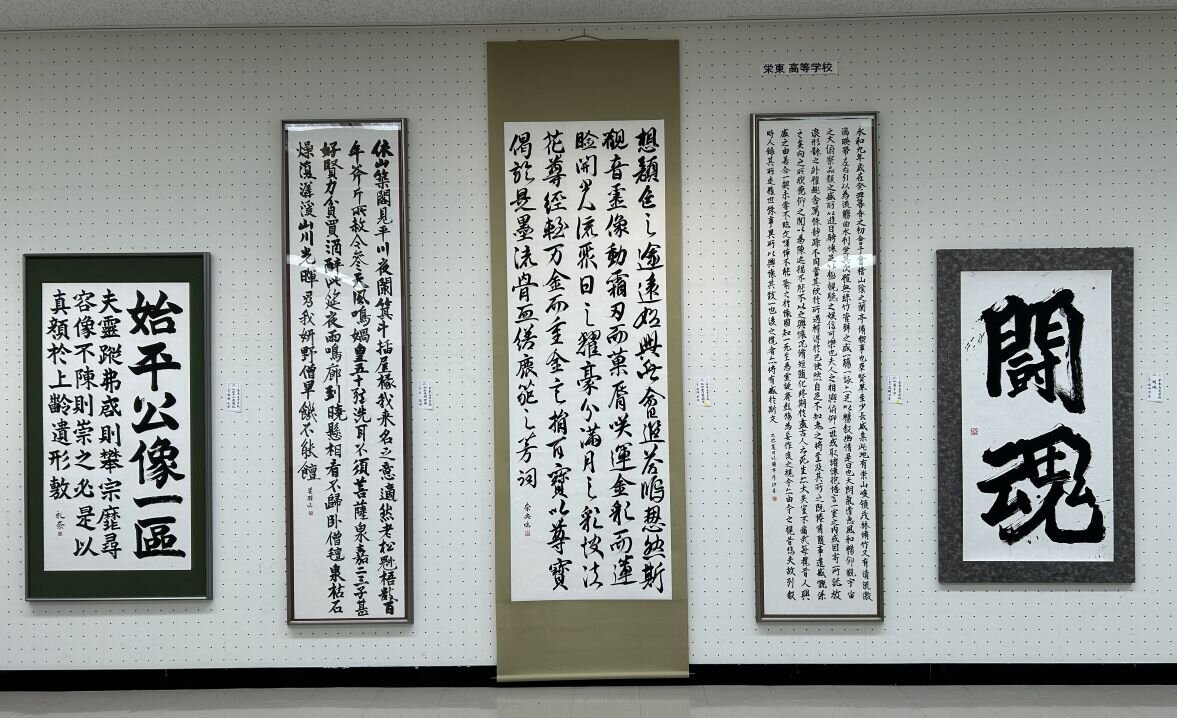 栄東 高等学校
始平公像一區
夫靈蹤弗啓則攀宗靡尋
容像不陳則崇之必是以
真顏於上齡遺形敷
依山築閣見平川夜闌箕斗插屋椽我來名之意適然老松魁梧數百
年斧斤所赦今參天風鳴媧皇五十弦洗耳不須菩薩泉嘉二三子甚
好賢力貧買酒醉此筵夜雨鳴廊到曉懸相看不歸臥僧氈泉枯石
燥復潺湲山川光暉為我妍野僧旱饑不能饘
想顏色之逾遠如與此會
觀音畫像動霜刃而菓脣咲運金彩而蓮
瞼開火流飛日之耀豪分滿月之彩披法
花尊經軽万金而重金之指百寶以尊寶
偈於是墨流骨血繕廣筵之芳詞
永和九年歲在癸丑暮春之初會于會稽山陰之蘭亭脩禊事也群賢畢至少長咸集此地有崇山峻領茂林脩竹又有清流激
湍暎帶左右引以為流觴曲水列坐其次雖無絲竹管弦之盛一觴一詠亦足以暢敘幽情是日也天朗氣清惠風和暢仰觀宇宙
之大俯察品類之盛所以遊目騁懷足以極視聽之娛信可樂也夫人之相與俯仰一世或取諸懷抱悟言一室之內或因寄所託放
浪形骸之外雖趣舍萬殊靜躁不同當其欣於所遇暫得於己怏然自足不知老之將至及其所之既惓情隨事遷感慨係
之矣向之所欣俛仰之間以為陳迹猶不能不以之興懷況脩短隨化終期於盡古人云死生亦大矣豈不痛哉每攬昔人興
感之由若合一契未嘗不臨文嗟悼不能喻之於懷固知一死生為虛誕齊彭殤為妄作後之視今亦由今之視昔悲夫故列敘
時人錄其所述雖世殊事異所以興懷其致一也後之攬者亦將有感於斯文
闘魂